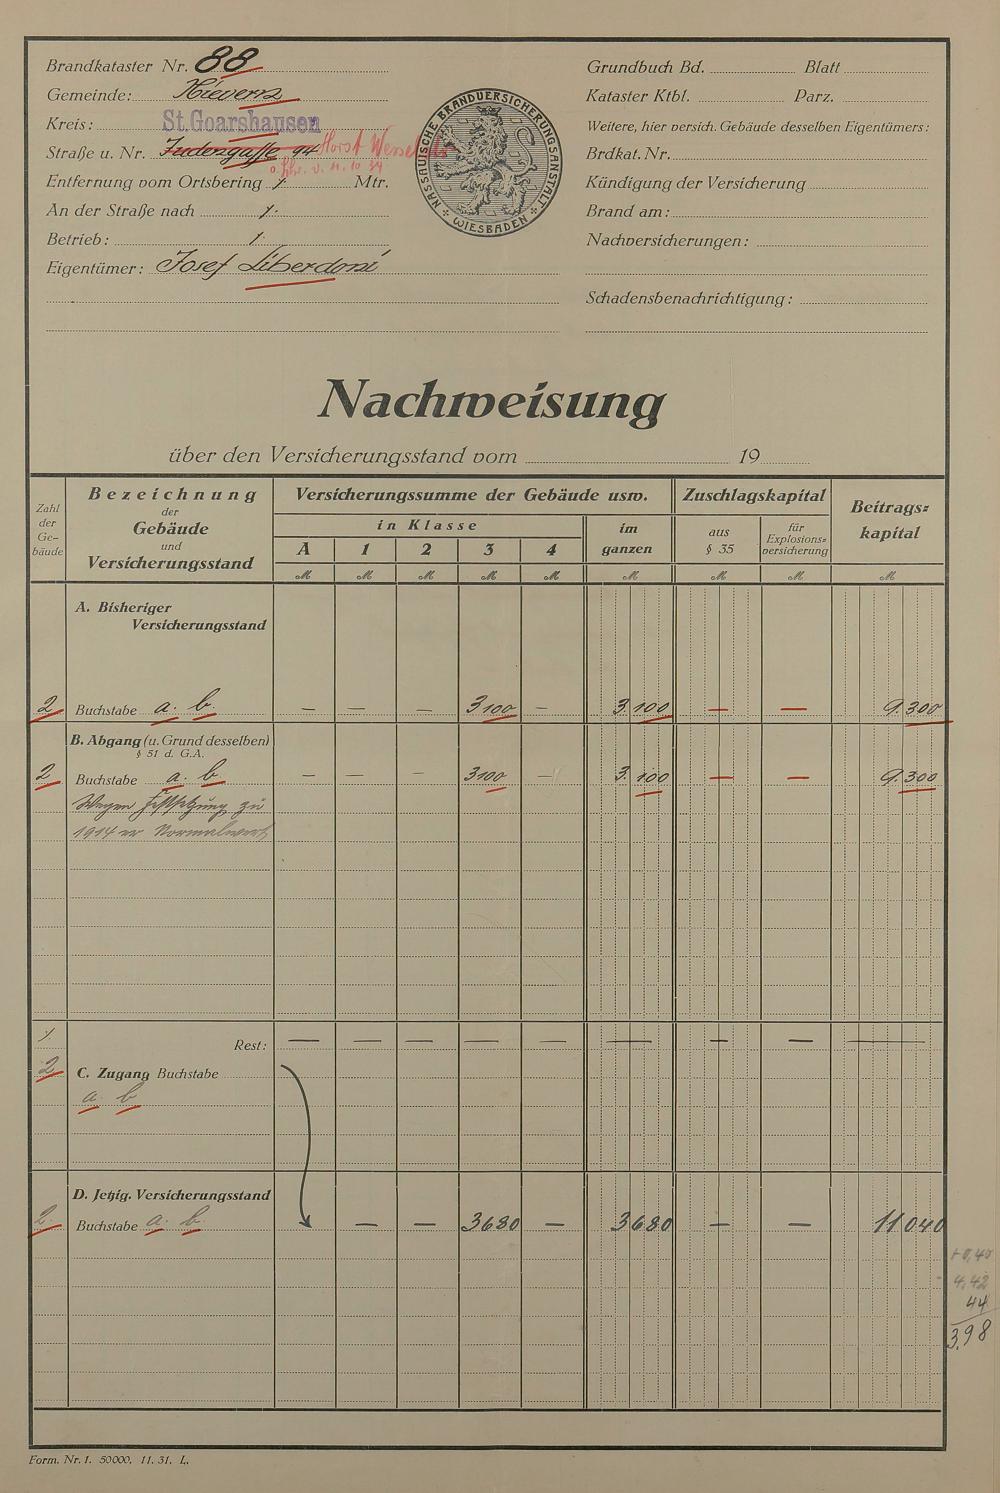 Brandkataster Nr. 88
Gemeinde: Nievern
Kreis: St. Goarshausen
Straße u. Nr. Judengasse 94 Horst Wessel
Entfernung vom Ortsbering 1/. Mtr.
An der Straße nach 1/.
Betrieb: 1/.
Eigentümer: Josef Liberdoni
NASSAUISCHE BRANDVERSICHERUNGSANSTALT
WIESBADEN
Grundbuch Bd. Blatt
Kataster Ktbl. Parz.
Weitere, hier versich. Gebäude desselben Eigentümers:
Brdkat. Nr.
Kündigung der Versicherung
Brand am:
Nachversicherungen:
Schadensbenachrichtigung:
Nachweisung
über den Versicherungsstand vom 19
Zahl der Ge-bäude
Bezeichnung der Gebäude und Versicherungsstand
Versicherungssumme der Gebäude usw.
in Klasse
A 1 2 3 4
im ganzen
Zuschlagskapital
aus § 35
für Explosions-versicherung
Beitrags-kapital
M M M M M M M M M
A. Bisheriger
Versicherungsstand
2 Buchstabe a. b. — — — 3100 — 3.100 — — 9.300
B. Abgang (u. Grund desselben)
§ 51 d. G.A.
2 Buchstabe a. b — — — 3100 — 3.100 — — 9.300
Wegen Festsetzung zu
1914er Normalwert
1/. Rest: — — — — — — — — —
2 C. Zugang Buchstabe
a. b
D. Jetzig. Versicherungsstand
2. Buchstabe a. b. — — 3680 — 3680 — — 11040
4,42
44
3,98
Form. Nr. 1. 50000. 11. 31. L.